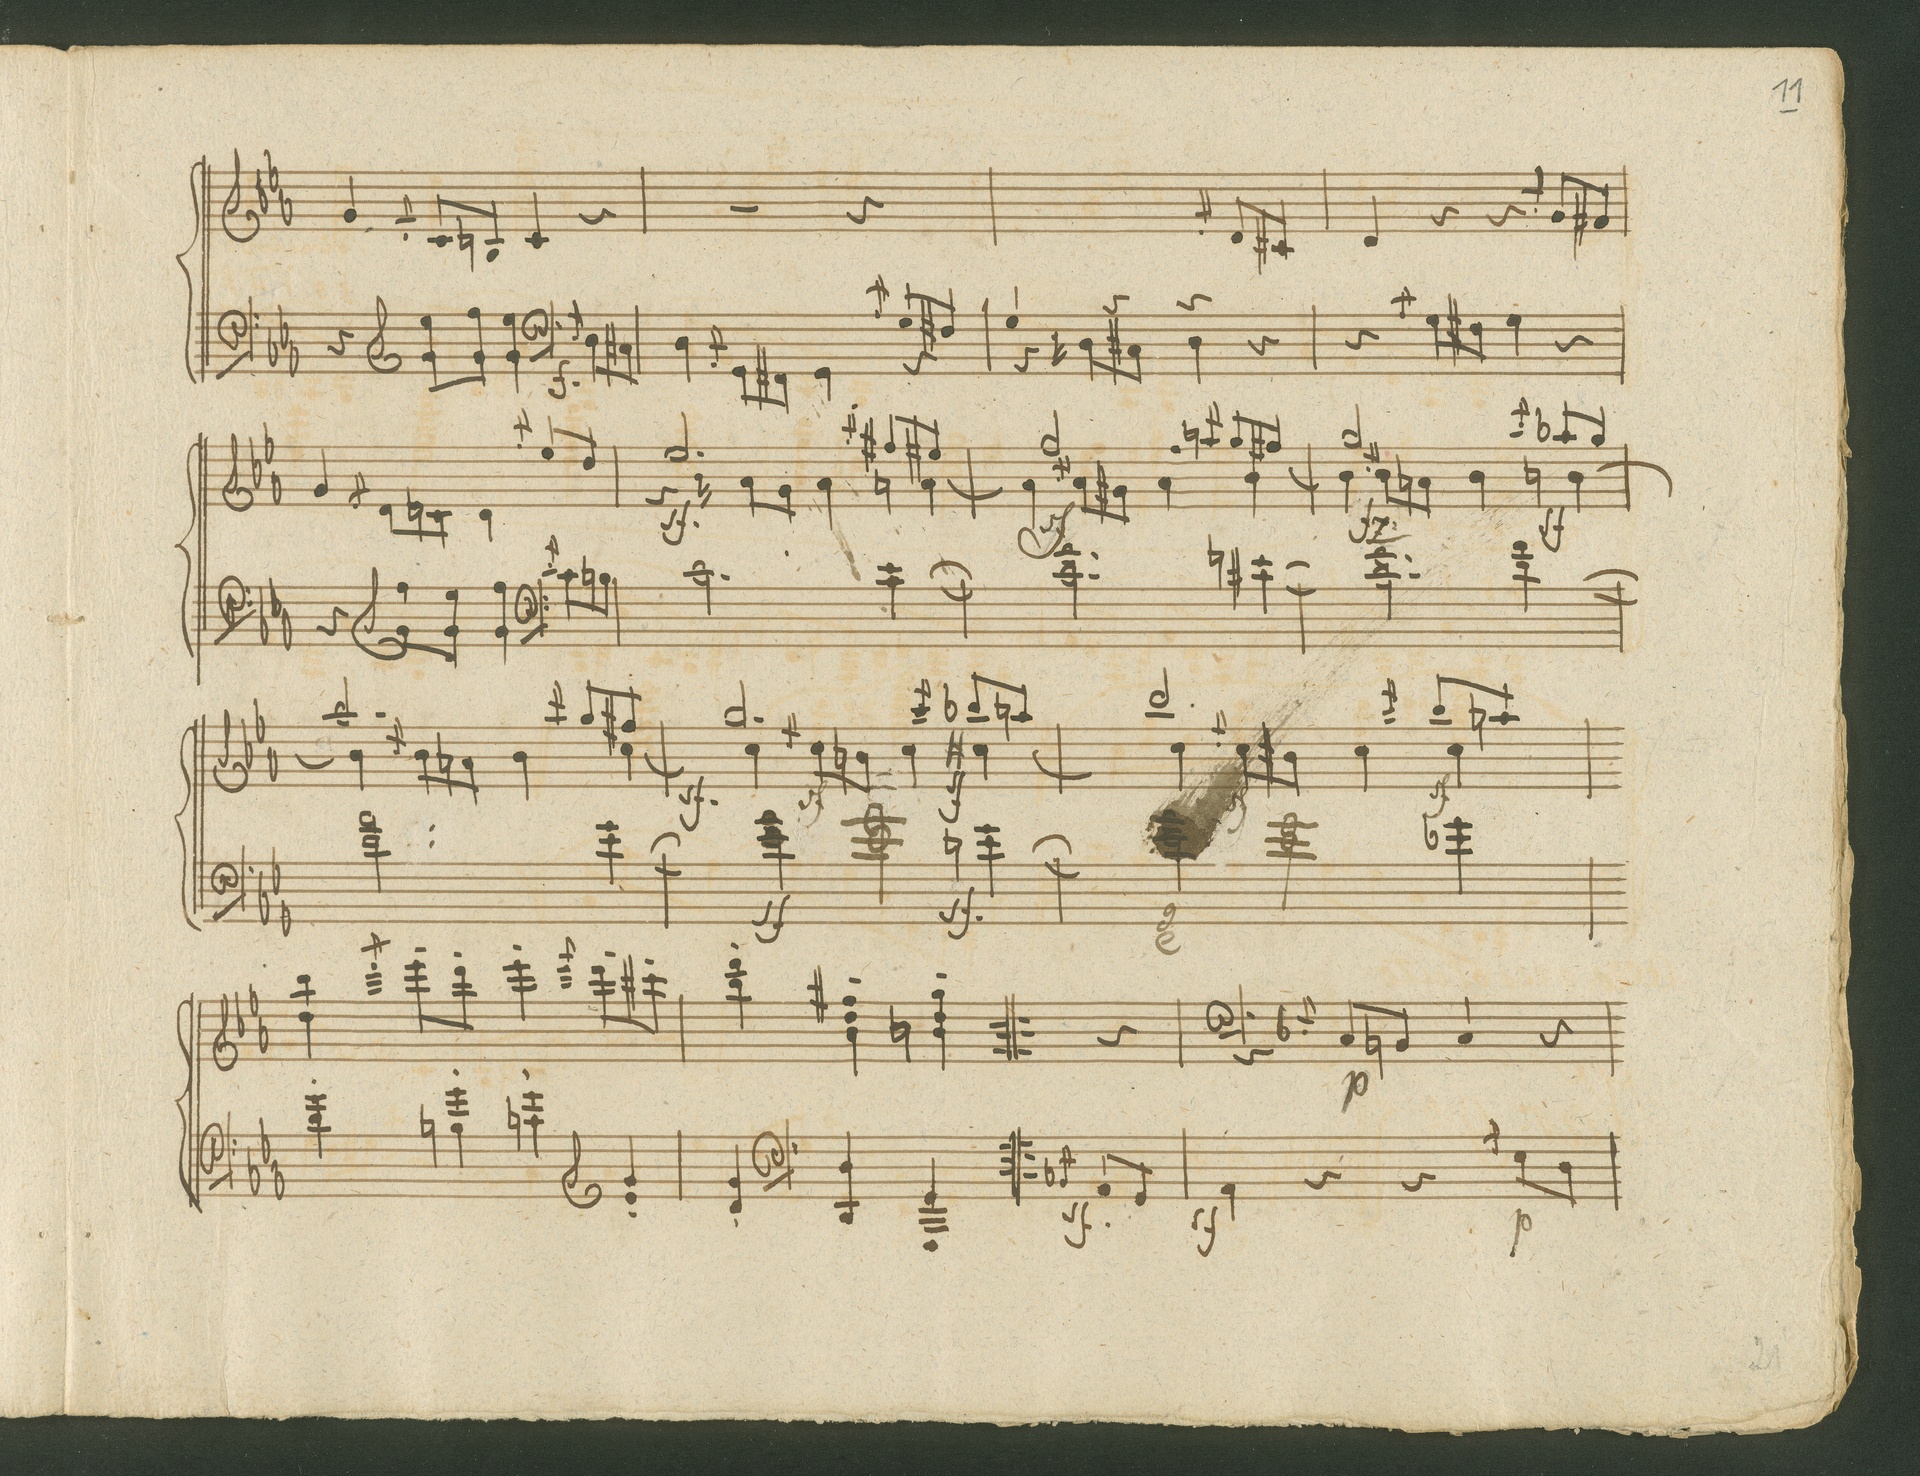 11
sf.
sf.
sf
sf
sf
sf.
sf
sf
sf
sf
sf.
g
e
p
sf.
sf
p
21